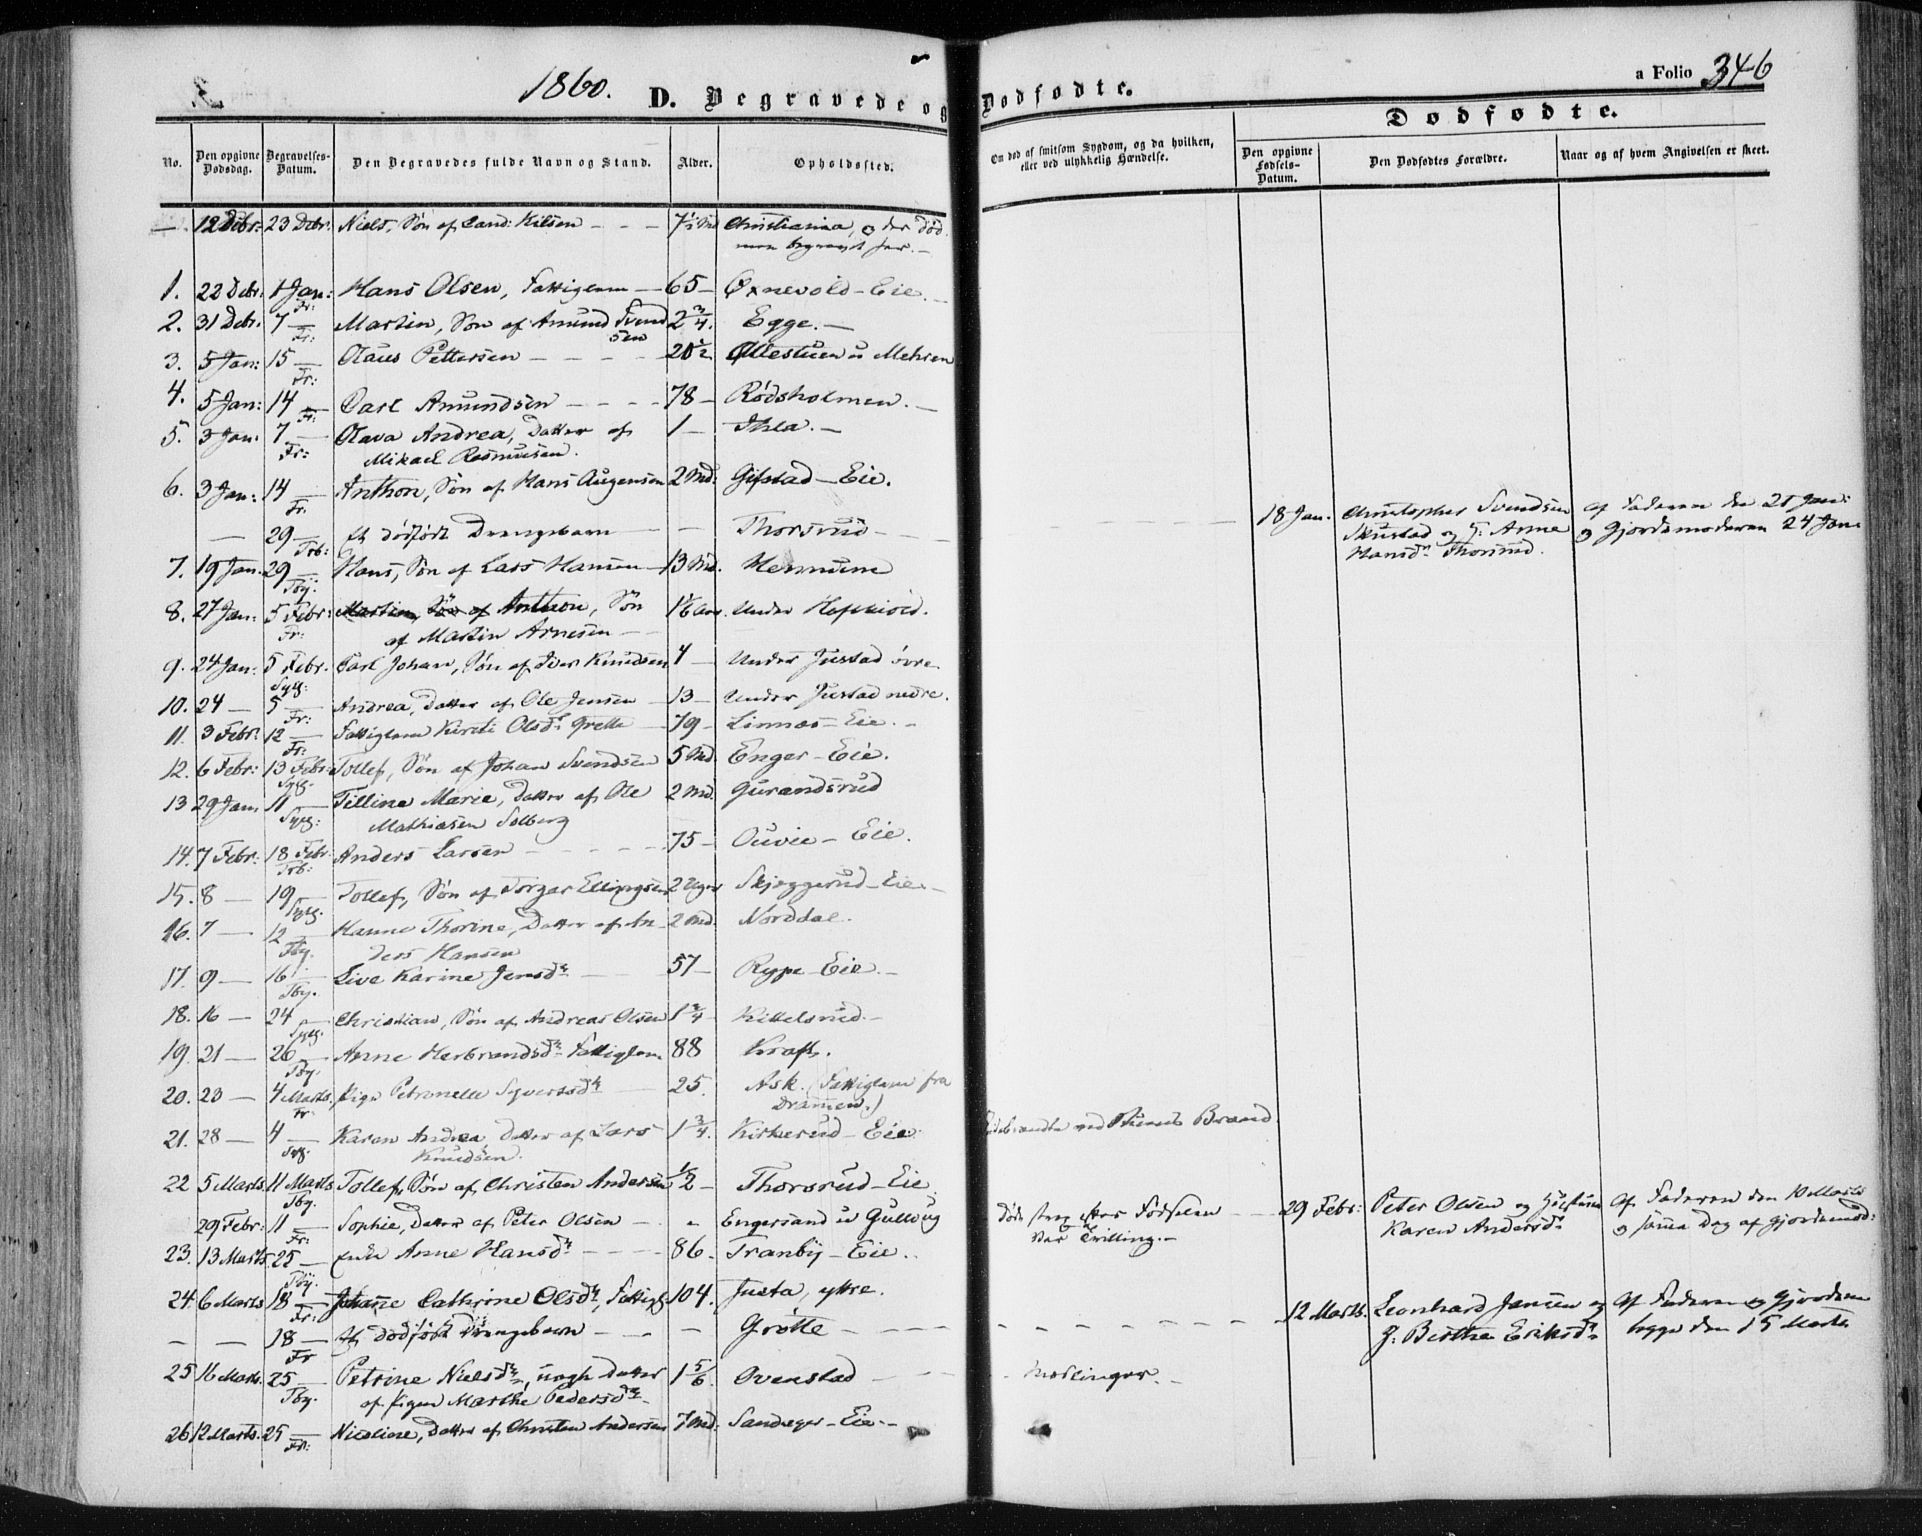 1860.
D. Begravede og Dødfødte.
a Folio 346
Dødfødte.
No. Den opgivne Dødsdag. Begravelses-Datum. Den Begravedes fulde Navn og Stand. Alder. Opholdssted. Om død af smitsom Sygdom, og da hvilken, eller ved ulykkelig Hændelse. Den opgivne Fødsels-Datum. Den Dødfødtes Forældre. Naar og af hvem Angivelsen er skeet.
— 12 Debr: 23 Debr: Niels, Søn af Cand: Kilsen - - - 7½ Md Christiania, o der død
men begravet her. —
1. 22 Debr: 1 Jan: Hans Olsen, Fattiglem — 65 — Øxnevold-Eie. —
Fr:
2. 31 Debr. 7 — Martin, Søn af Amund Svend 2¾. Egge. —
Fr: sen
3. 5 Jan: 15 — Olaus Pettersen - - - - 20½ Ollestuen u Mehren
Fr:
4. 5 Jan: 14 — Carl Amundsen - - - - 78 — Rødsholmen. —
Fr:
5. 3 Jan: 7 — Olava Andrea, Datter af 1 — Ihla. —
Fr: Mikael Rasmussen.
6. 3 Jan: 14 — Anthon, Søn af Hans Augensen 2 Md: Gifstad — Eie.
Fr.
— 29 — Et dødfødt Drengebarn — — Thorsrud - - - 18 Jan. Christopher Svendsen af Faderen den 21 Jan:
Trb: Skustad og H: Anne o Gjordemoderen 24 Jan.
Hansd. Thorsrud.
7. 19 Jan. 29 — Hans, Søn af Lars Hansen — 13 Md. Hennum
Tby.
8. 27 Jan: 5 Febr: Martin, Søn af Anthon, Søn 1/6 Aar. Under
Fr: af Martin Arnesen —
9. 24 Jan: 5 Febr. Carl Johan, Søn af Iver Knudsen 4 — Under Justad øvre
Sylg:
10. 24 — 5 — Andrea, Datter af Ole Jensen — 13 — Under Justad nedre.
Fr:
11. 3 Febr: 12 — Fattiglem Kirsti Olsdr Grette — 79 — Linnæs — Eie. —
Fr:
12. 6 Febr: 13 Febr Tollef, Søn af Johan Svendsen 5 Md Enger — Eie.
Sylg.
13 29 Jan. 11 — Tilline Marie, Datter af Ole 2 Md. Gurandsrud
Sylg: Mathiesen Solberg
14. 7 Febr: 18 Febr Anders Larsen - - - - - 75 — Ouvie — Eie.
Trb:
15. 8 — 19 — Tollef, Søn af Torger Ellingsen 2 Uger Skjeggerud — Eie —
Sylg.
16. 7 — 12 — Hanne Thorine, Datter af An- 2 Md. Norddal.
Tby. ders Hansen
17. 9 — 16 — Live Karine Jensdr — 57 — Rype — Eie. —
Tby.
18. 16 — 24 — Christian, Søn af Andreas Olsen 1¾ — Kittelsrud. —
Sylg
19. 21 — 26 — Anne Herbrandsdr Fattiglem 88 Kraft.
Tby.
20. 23 — 4 Marts. Pige Petronelle Syvertsdr — 25. Ask. (Fattiglem fra
Fr. Drammen.)
21. 28 — 4 — Karen Andrea, Datter af Lars 1¾. Kirkerud — Eie. Brand.
Sylg. Knudsen.
22 5 Marts. 11 Marts Tollef, Søn af Christen Andersen ½ — Thorsrud — Eie
Tby.
29 Febr: 11 — Sophie, Datter af Peter Olsen — - „ Engersand u Gullaug Døde strax efter Fødselen 29 Febr: Peter Olsen og Hustru Af Faderen den 10 Marts
Fr: Var Tvilling. — Karen Andersdr o samme Dag af Gjordemod:
23. 13 Marts. 25 — Enke Anne Hansdr - - - 86. Tranby — Eie. .
Tby.
24. 6 Marts 18 — Johanne Cathrine Olsdr, Fattigl 104. Justa, ytre.
Fr:
— — 18 — Et dødfødt Drengebarn - - — Grøtte - - - 12 Marts. Leonhard Jansen og Af Faderen og Gjordem
Fr H. Berthe Eriksdr begge den 15 Marts
25 16 Marts. 25 — Petrine Nielsdr, uægte Datter 1 5/6. Ovenstad - - - Mæslinger. —
Tby. af Pigen Marthe Pedersdr —
26 12 Marts. 25 — Nicoline, Datter af Christen Andersen 7 Md: Sandager — Eie. —
Fr: